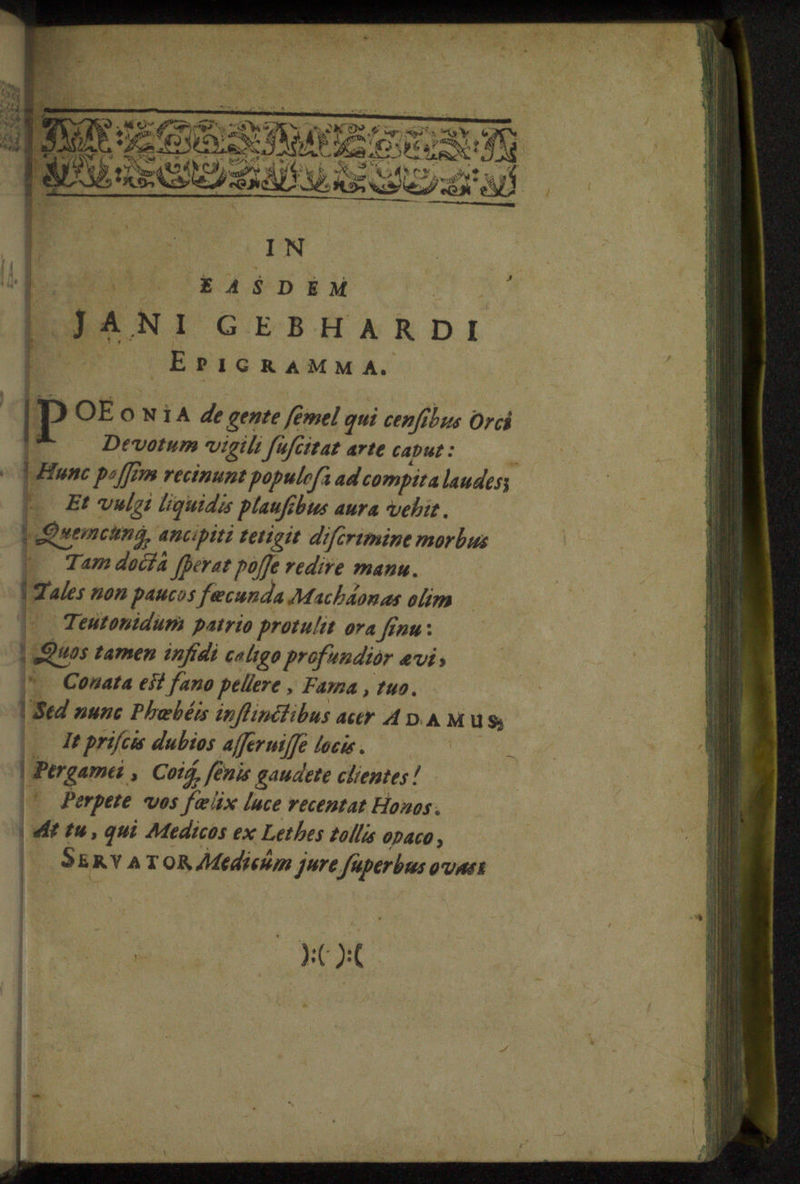 IN
EASDEM
JANI GEBHARDI
EPIGRAMMA.
POEONIA de gente ſemel qui cenſibus Orci
Devotum vigili ſuſcitat arte caput:
Hunc paſſim recinunt populoſa ad compita laudes;
Et vulgi liquidis plauſibus aura vehit.
Quemcũnq; ancipiti tetigit diſcrimine morbus
Tam doctâ ſperat poſſe redire manu.
Tales non paucos fæcunda Machâonas olim
Teutonidum patrio protulit ora ſinu:
Quos tamen infidi caligo profundior ævi,
Conata eſt fano pellere, Fama, tuo.
Sed nunc Phœbéis inſtinctibus acer ADAMUS,
It priſcis dubios aſſeruiſſe locis.
Pergamei, Coiq; ſenis gaudete clientes!
Perpete vos fælix luce recentat Honos.
At tu, qui Medicos ex Lethes tollis opaco,
SERVATOR Medicûm jure ſuperbus ovas:
):( ):(